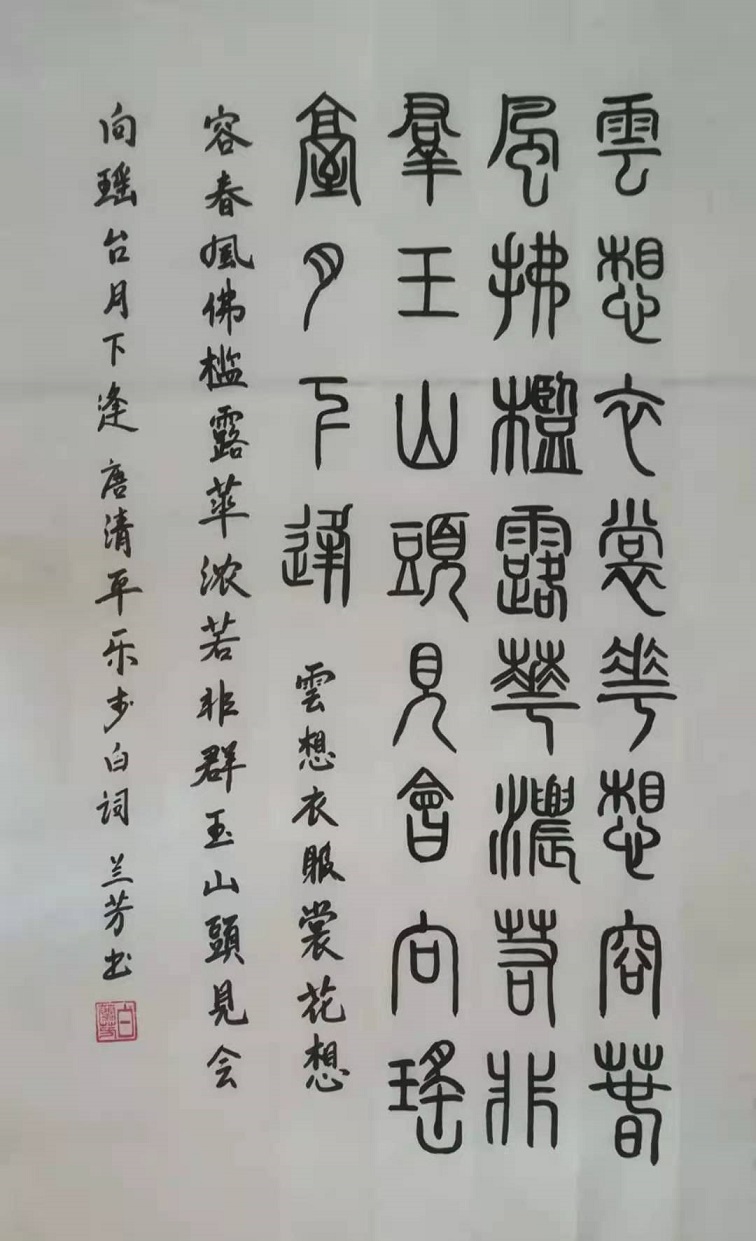 雲想衣裳花想容春
風拂檻露華濃若非
羣玉山頭見會向瑤
臺月下逢
雲想衣服裳花想
容春風佛槛露華浓若非群玉山頭見会
向瑶台月下逢 唐清平乐步白词 兰芳书